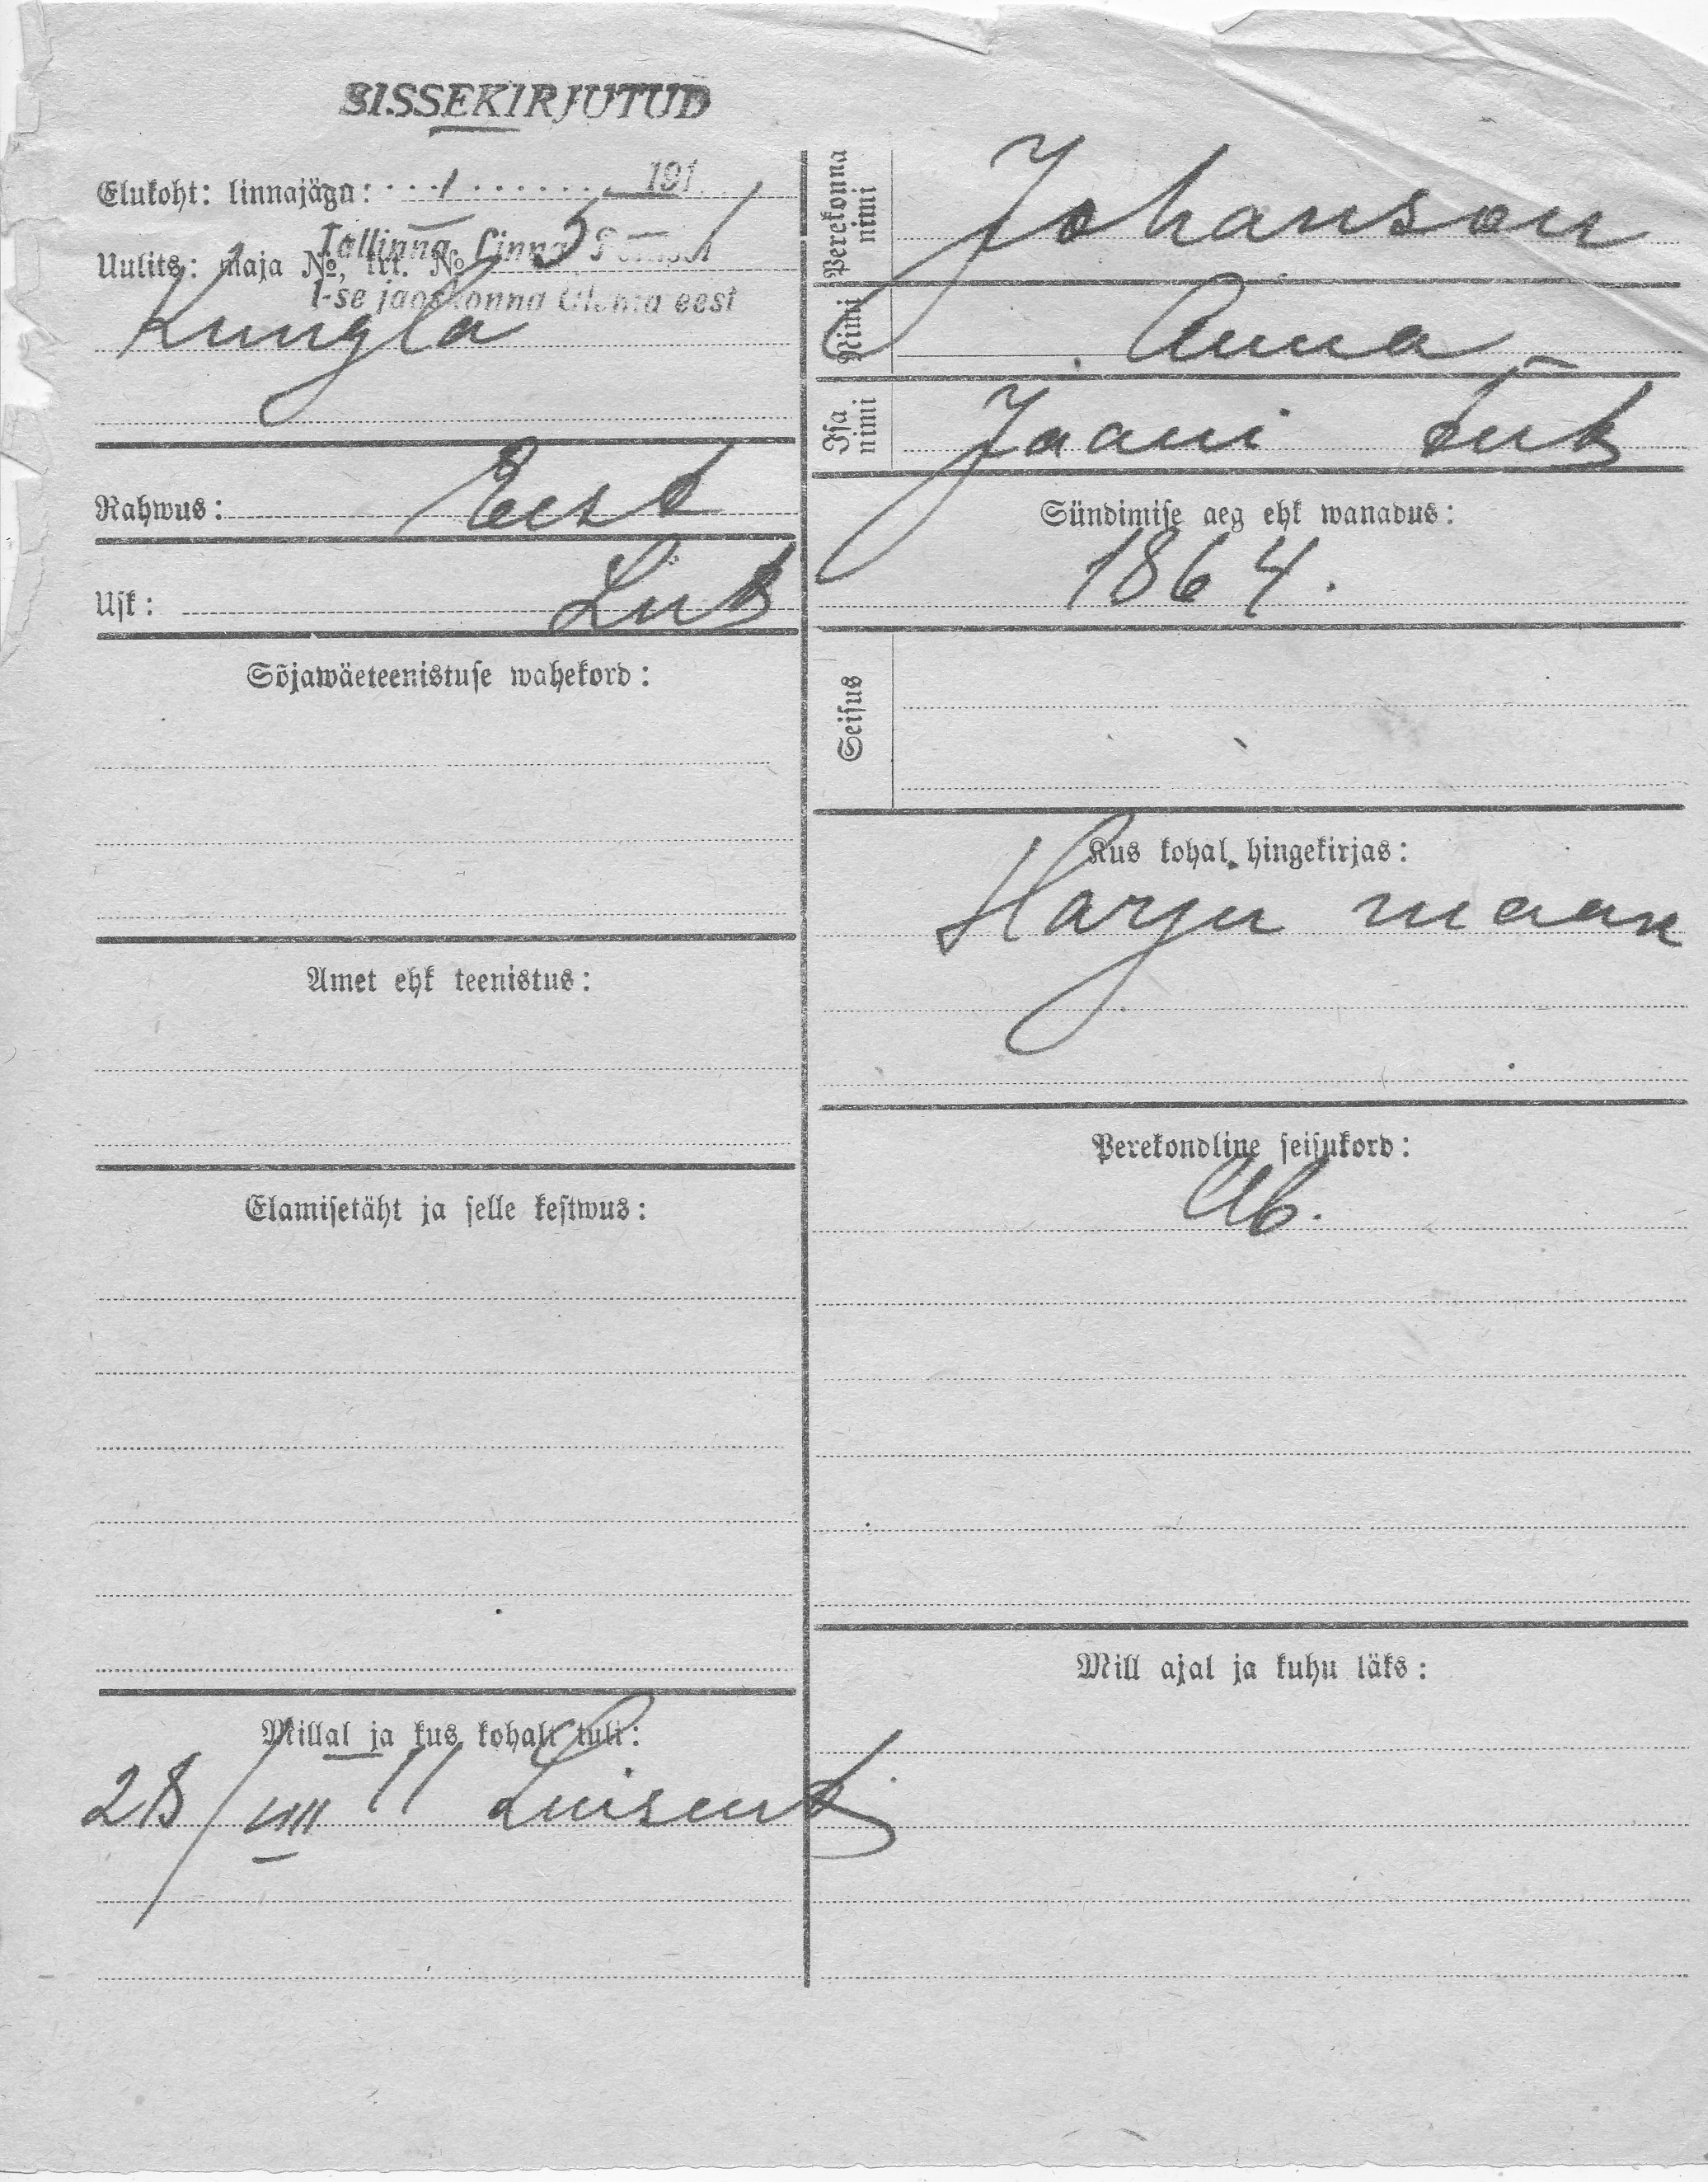 SISSEKIRJUTUD
Elukoht: linnajägu: 1 191
Uulits: maja №, krt. № 5
Tallinna Linna
1-se jaoskonna Ülema eest
Kungla
Rahwus: Eest
Usk: Lut
Sõjawäeteenistuse wahekord:
Amet ehk teenistus:
Elamisetäht ja selle kestwus:
Millal ja kus kohalt tuli:
28/VIII
Perekonna nimi Johanson
Nimi Anna
Isa nimi Jaani tüt
Sündimise aeg ehk wanadus:
1864.
Seisus
Kus kohal hingekirjas:
Harju maan
Perekondline seisukord:
Ab.
Mill ajal ja kuhu läks: